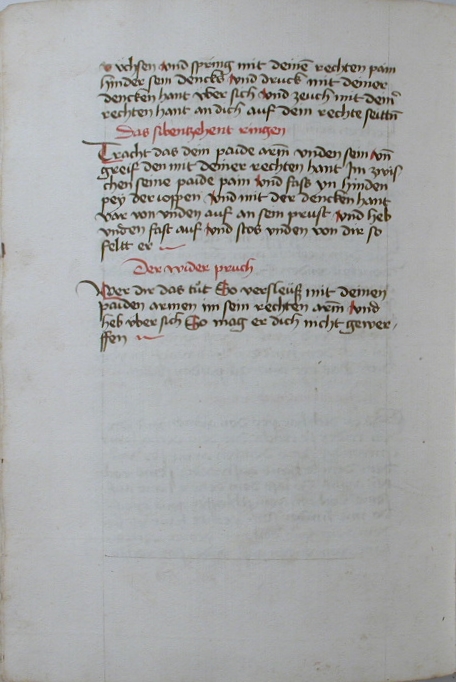 uchsen Vnd spring mit deinē rechten pain
hinder sein dencks Vnd druck mit deiner
dencken hant vber sich Vnd zeuch mit dein̄
rechten hant an dich auf dem rechtē seittn̄
Das sibentzehent ringen
Tracht das dein paide arm̄ vnden sein vn̄
greif den mit deiner rechten hant Im zwis
chen seine paide pain Vnd fass yn hinden
pey der ioppen Vnd mit der dencken hant
var von vnden auf an sein prust Vnd heb
vnden fast auf Vnd stos vnden von dir so
feltt er
Der wider pruch
Wer dir das tut So versleuß mit deinen
paiden armen im sein rechten arm̄ Vnd
heb vber sich So mag er dich nicht gewer-
ffen